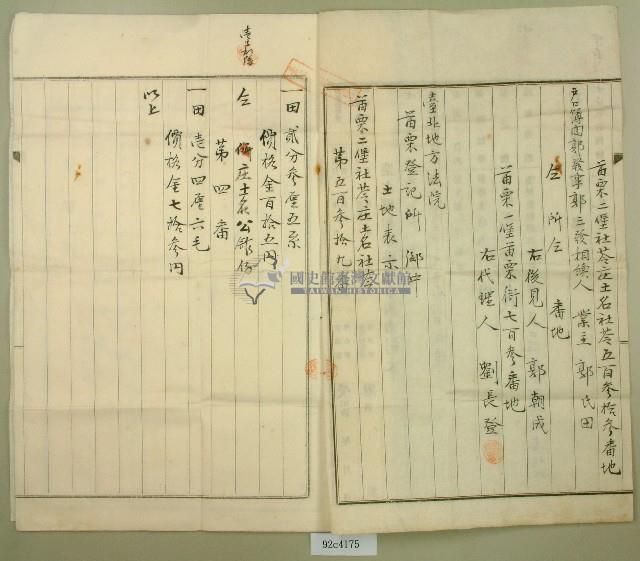 苗栗二堡社苓庄土名社苓五百參拾參番地
郭三發相續人 業主 郭氏田
仝所仝 番地
右後見人 郭朝成
苗栗一堡苗栗街七百參番地
右代理人 劉長登
臺北地方法院
苗栗登記所 御中
土地表示
苗栗二堡社苓庄土名社苓
第五百參拾九
一田 貳分參厘五糸
價格金百拾五円
仝 庄土名公館份
第四番
一田 壱分四厘六毛
價格金七拾參円
以上
國史館臺灣文獻館
TAIWAN HISTORICA
92c4175